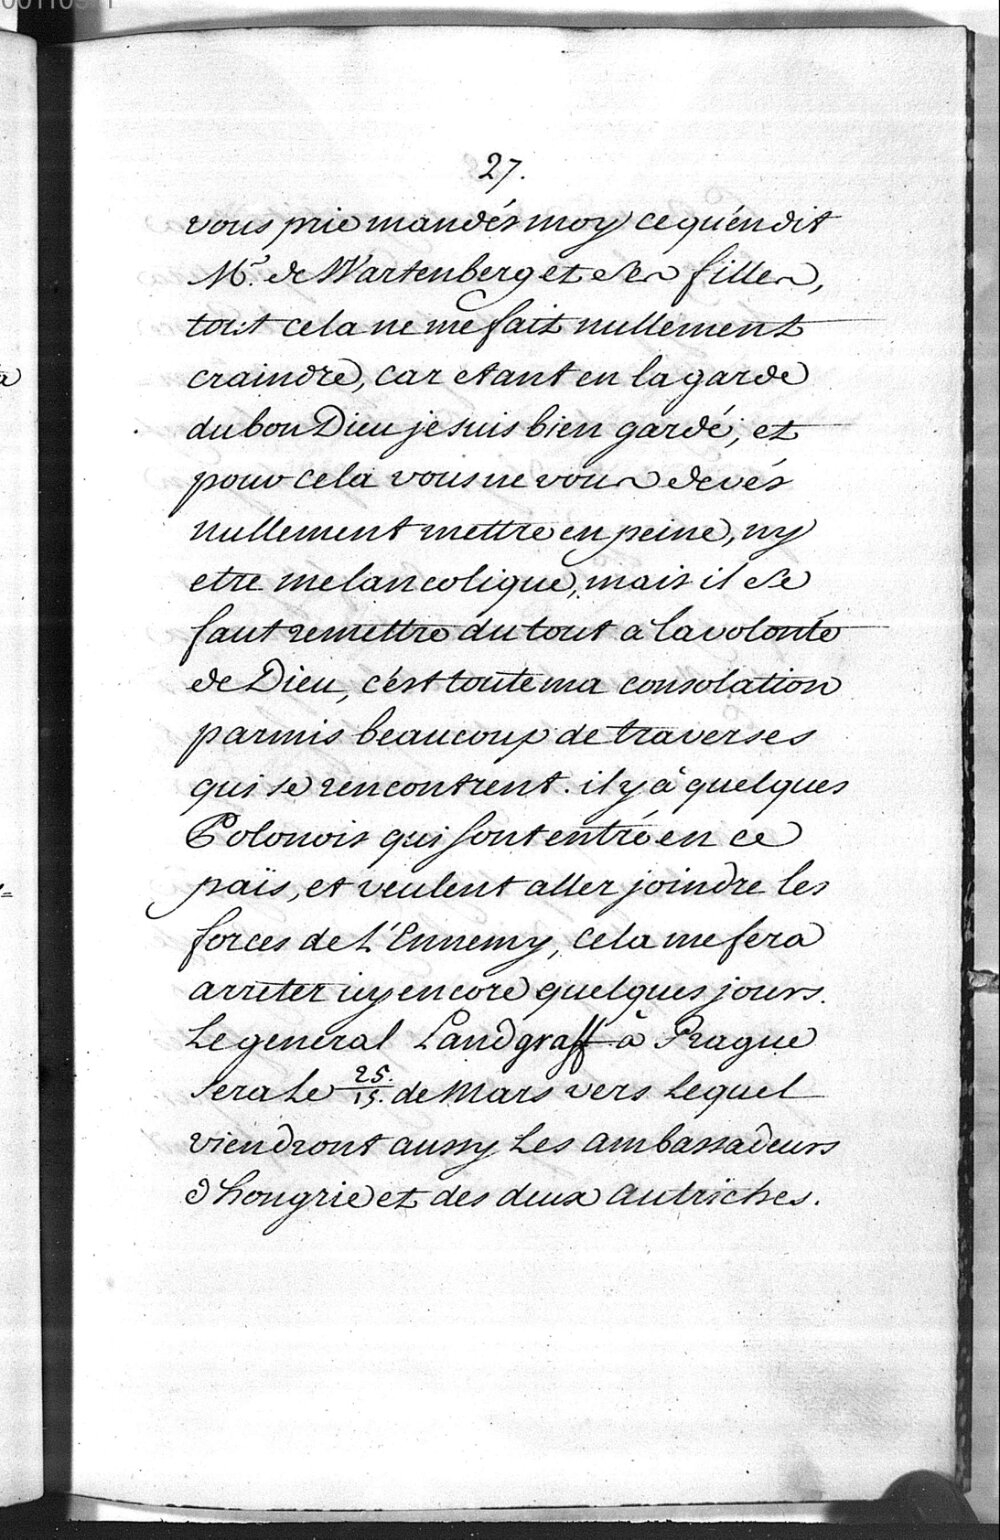 27.
vous prie mandés moy ce qu'en dit
Mr. de Wartenberg et ses filles,
tout cela ne me fait nullement
craindre, car etant en la garde
du bon Dieu je suis bien gardé, et
pour cela vous ne vous devés
nullement mettre en peine, ny
etre melancolique, mais il se
faut remettre du tout à la volonté
de Dieu, c'est toute ma consolation
parmis beaucoup de traverses
qui se rencontrent. il y à quelques
Polonois qui sont entré en ce
païs, et veulent aller joindre les
forces de L'Ennemy, cela me fera
arreter icy encore quelques jours.
Le general Landgraff à Prague
sera Le 25./15. de Mars vers Lequel
viendront aussy Les ambassadeurs
d'hongrie et des deux autriches.